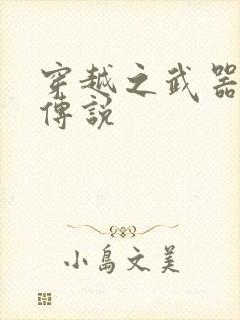 穿越之武器
傳說
小島文美